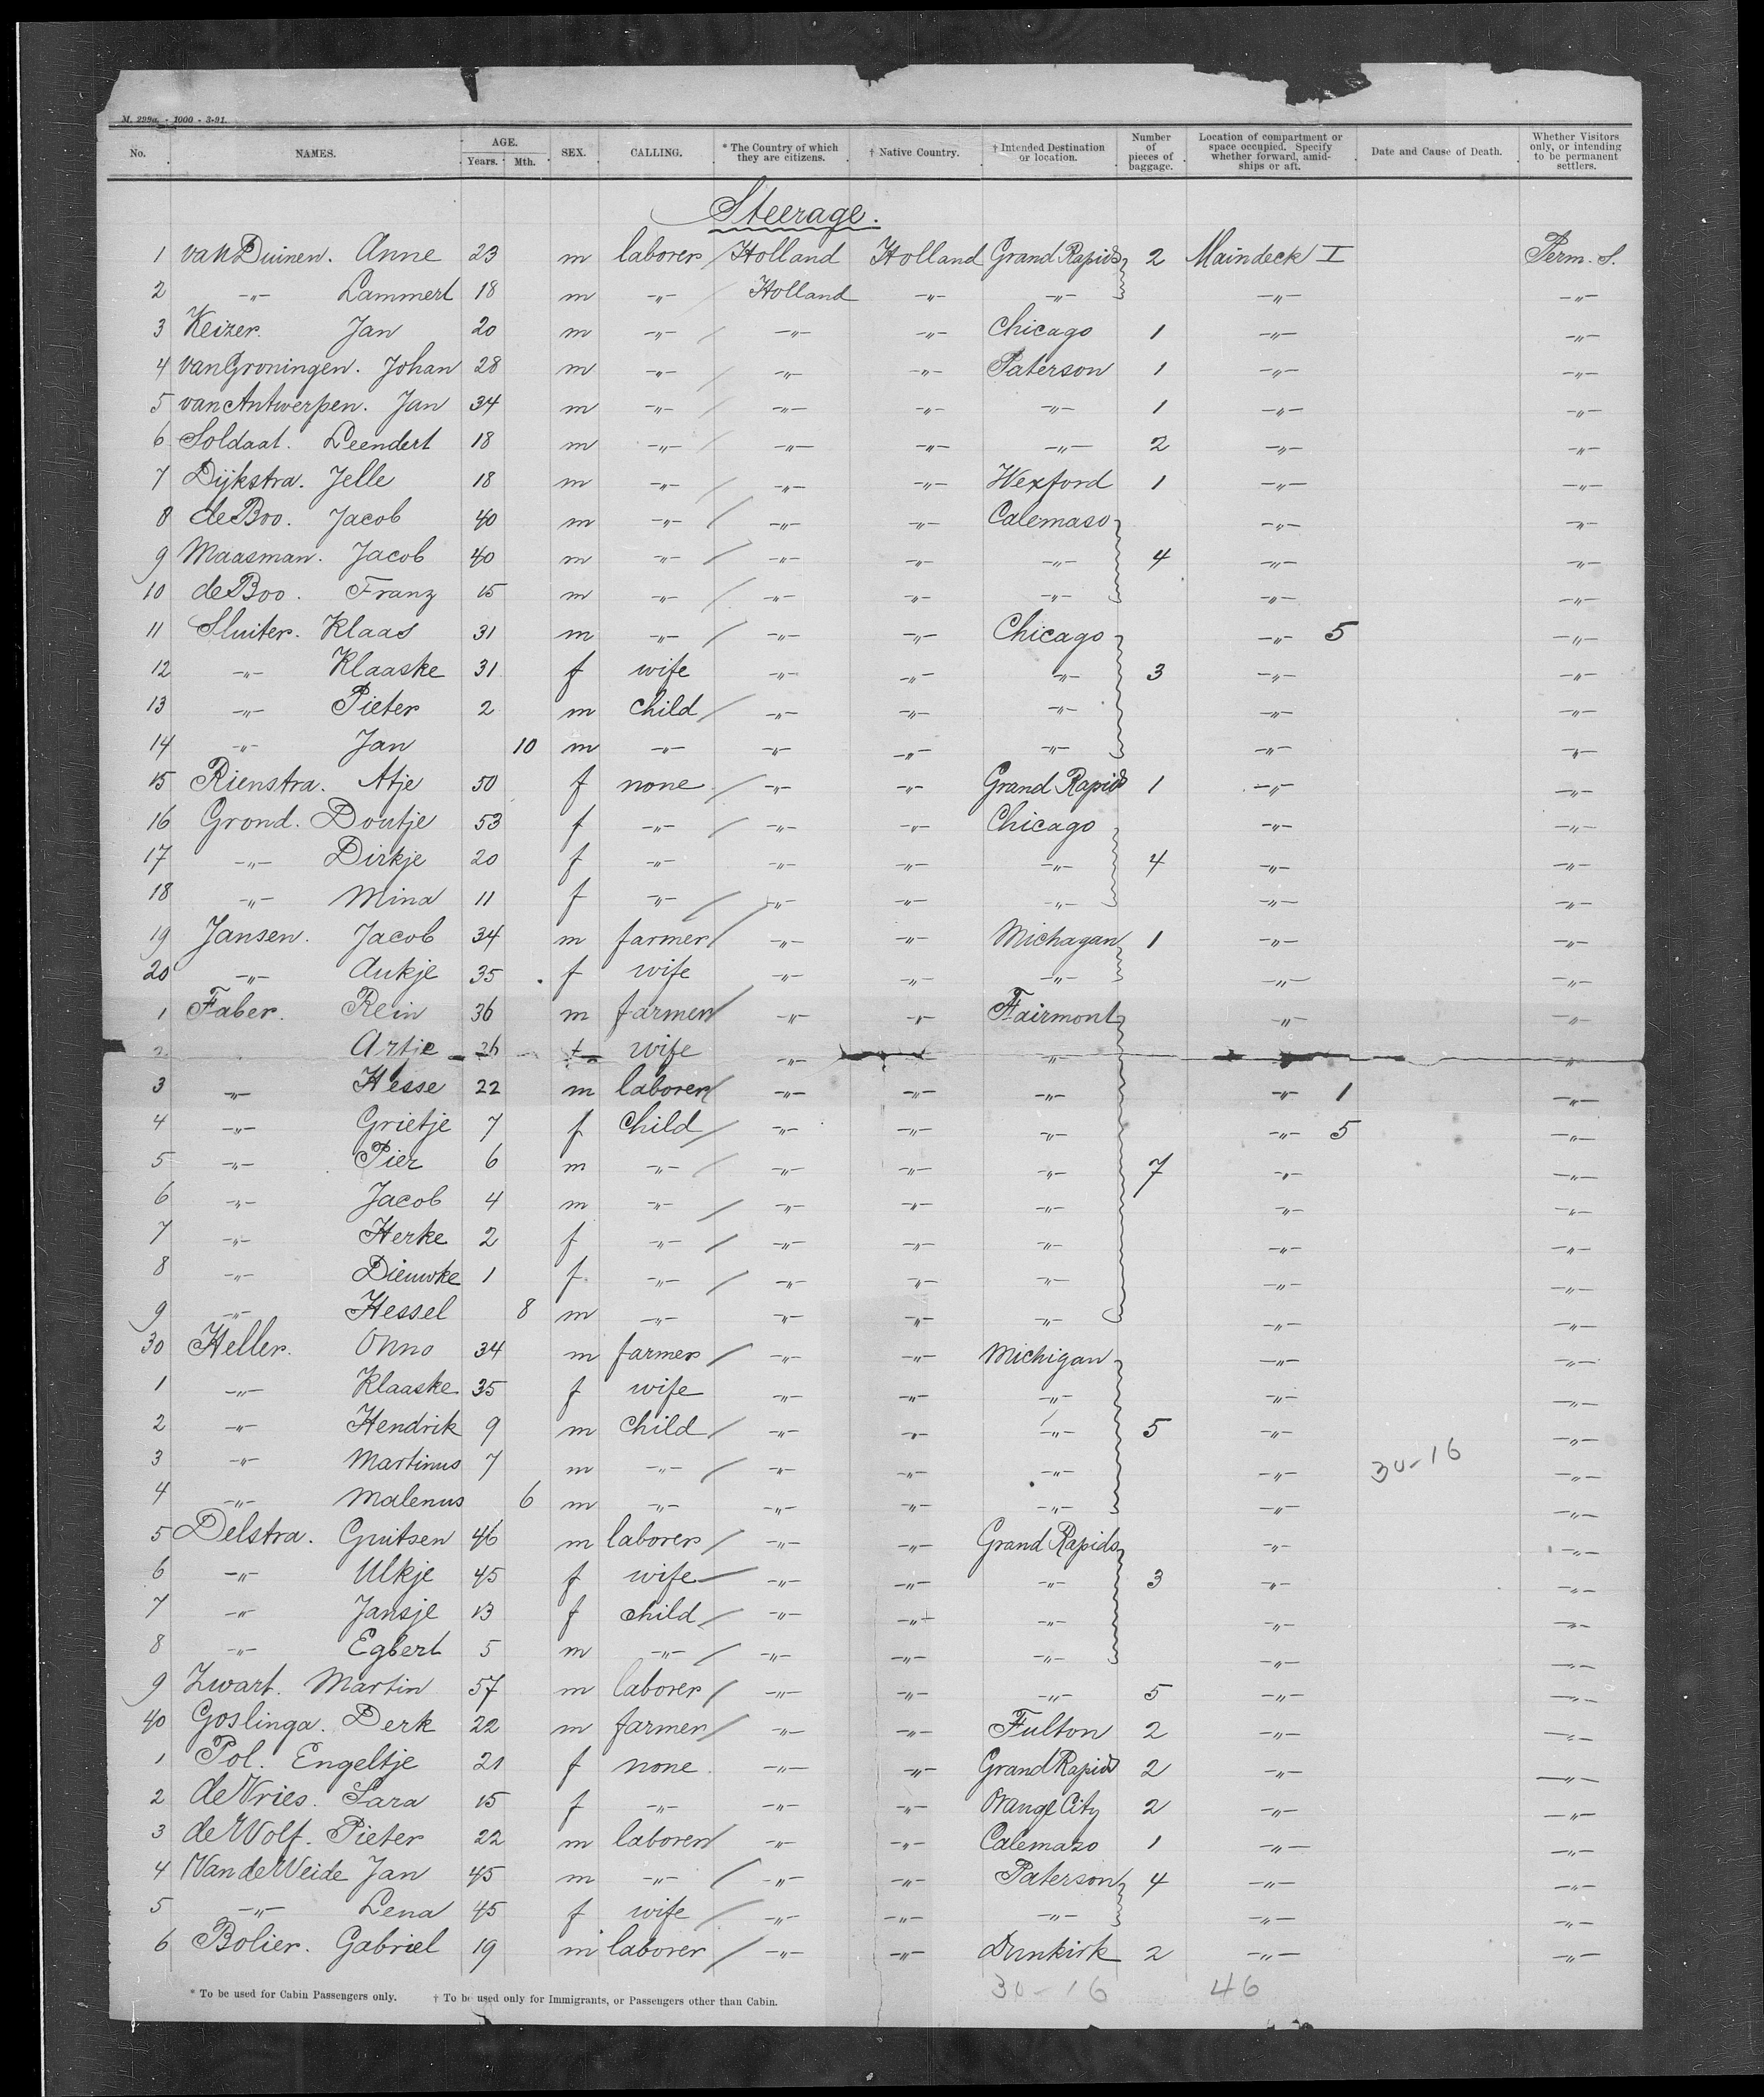 M. 299a. - 1000 - 3-91.
No. NAMES. AGE. Years. Mth. SEX. CALLING. * The Country of which they are citizens. † Native Country. † Intended Destination or location. Number of pieces of baggage. Location of compartment or space occupied. Specify whether forward, amidships or aft. Date and Cause of Death. Whether Visitors only, or intending to be permanent settlers.
Steerage.
1 van Duinen. Anne 23 m laborer Holland Holland Grand Rapids 2 Maindeck I Perm. S.
2 -"- Lammert 18 m -"- Holland -"- -"- -"- -"-
3 Keizer. Jan 20 m -"- -"- -"- Chicago 1 -"- -"-
4 van Groningen. Johan 28 m -"- -"- -"- Paterson 1 -"- -"-
5 van Antwerpen. Jan 34 m -"- -"- -"- -"- 1 -"- -"-
6 Soldaat. Leendert 18 m -"- -"- -"- -"- 2 -"- -"-
7 Dijkstra. Jelle 18 m -"- -"- -"- Wexford 1 -"- -"-
8 de Boo. Jacob 40 m -"- -"- -"- Calemaso -"- -"-
9 Maasman. Jacob 40 m -"- -"- -"- -"- 4 -"- -"-
10 de Boo. Franz 15 m -"- -"- -"- -"- -"- -"-
11 Sluiter. Klaas 31 m -"- -"- -"- Chicago -"- 5 -"-
12 -"- Klaaske 31 f wife -"- -"- -"- 3 -"- -"-
13 -"- Pieter 2 m child -"- -"- -"- -"- -"-
14 -"- Jan 10 m -"- -"- -"- -"- -"- -"-
15 Rienstra. Atje 50 f none -"- -"- Grand Rapids 1 -"- -"-
16 Grond. Doutje 53 f -"- -"- -"- Chicago -"- -"-
17 -"- Dirkje 20 f -"- -"- -"- -"- 4 -"- -"-
18 -"- Mina 11 f -"- -"- -"- -"- -"- -"-
19 Jansen. Jacob 34 m farmer -"- -"- Michagan 1 -"- -"-
20 -"- Aukje 35 f wife -"- -"- -"- -"- -"-
1 Faber. Rein 36 m farmer -"- -"- Fairmont -"- -"-
2 Artje 26 f wife -"- -"- -"-
3 -"- Hesse 22 m laborer -"- -"- -"- -"- 1 -"-
4 -"- Grietje 7 f child -"- -"- -"- -"- 5 -"-
5 -"- Pier 6 m -"- -"- -"- -"- 7 -"- -"-
6 -"- Jacob 4 m -"- -"- -"- -"- -"- -"-
7 -"- Herke 2 f -"- -"- -"- -"- -"- -"-
8 -"- Dieuwke 1 f -"- -"- -"- -"- -"- -"-
9 -"- Hessel 8 m -"- -"- -"- -"- -"- -"-
30 Heller. Onno 34 m farmer -"- -"- Michigan -"- -"-
1 -"- Klaaske 35 f wife -"- -"- -"- -"- -"-
2 -"- Hendrik 9 m child -"- -"- -"- 5 -"- -"-
3 -"- Martinus 7 m -"- -"- -"- -"- -"- 30-16 -"-
4 -"- Malenus 6 m -"- -"- -"- -"- -"- -"-
5 Delstra. 46 m laborer -"- -"- Grand Rapids -"- -"-
6 -"- Ulkje 45 f wife -"- -"- -"- 3 -"- -"-
7 -"- Jansje 13 f child -"- -"- -"- -"- -"-
8 -"- Egbert 5 m -"- -"- -"- -"- -"- -"-
9 Zwart. Martin 57 m laborer -"- -"- -"- 5 -"- -"-
40 Goslinga. Derk 22 m farmer -"- -"- Fulton 2 -"- -"-
1 Pol. Engeltje 21 f none -"- -"- Grand Rapids 2 -"- -"-
2 de Vries. Sara 15 f -"- -"- -"- Orange City 2 -"- -"-
3 de Wolf. Pieter 22 m laborer -"- -"- Calemazo 1 -"- -"-
4 Van de Weide Jan 45 m -"- -"- -"- Paterson 4 -"- -"-
5 -"- Lena 45 f wife -"- -"- -"- -"- -"-
6 Bolier. Gabriel 19 m laborer -"- -"- Dunkirk 2 -"- -"-
30-16 46
* To be used for Cabin Passengers only. † To be used only for Immigrants, or Passengers other than Cabin.